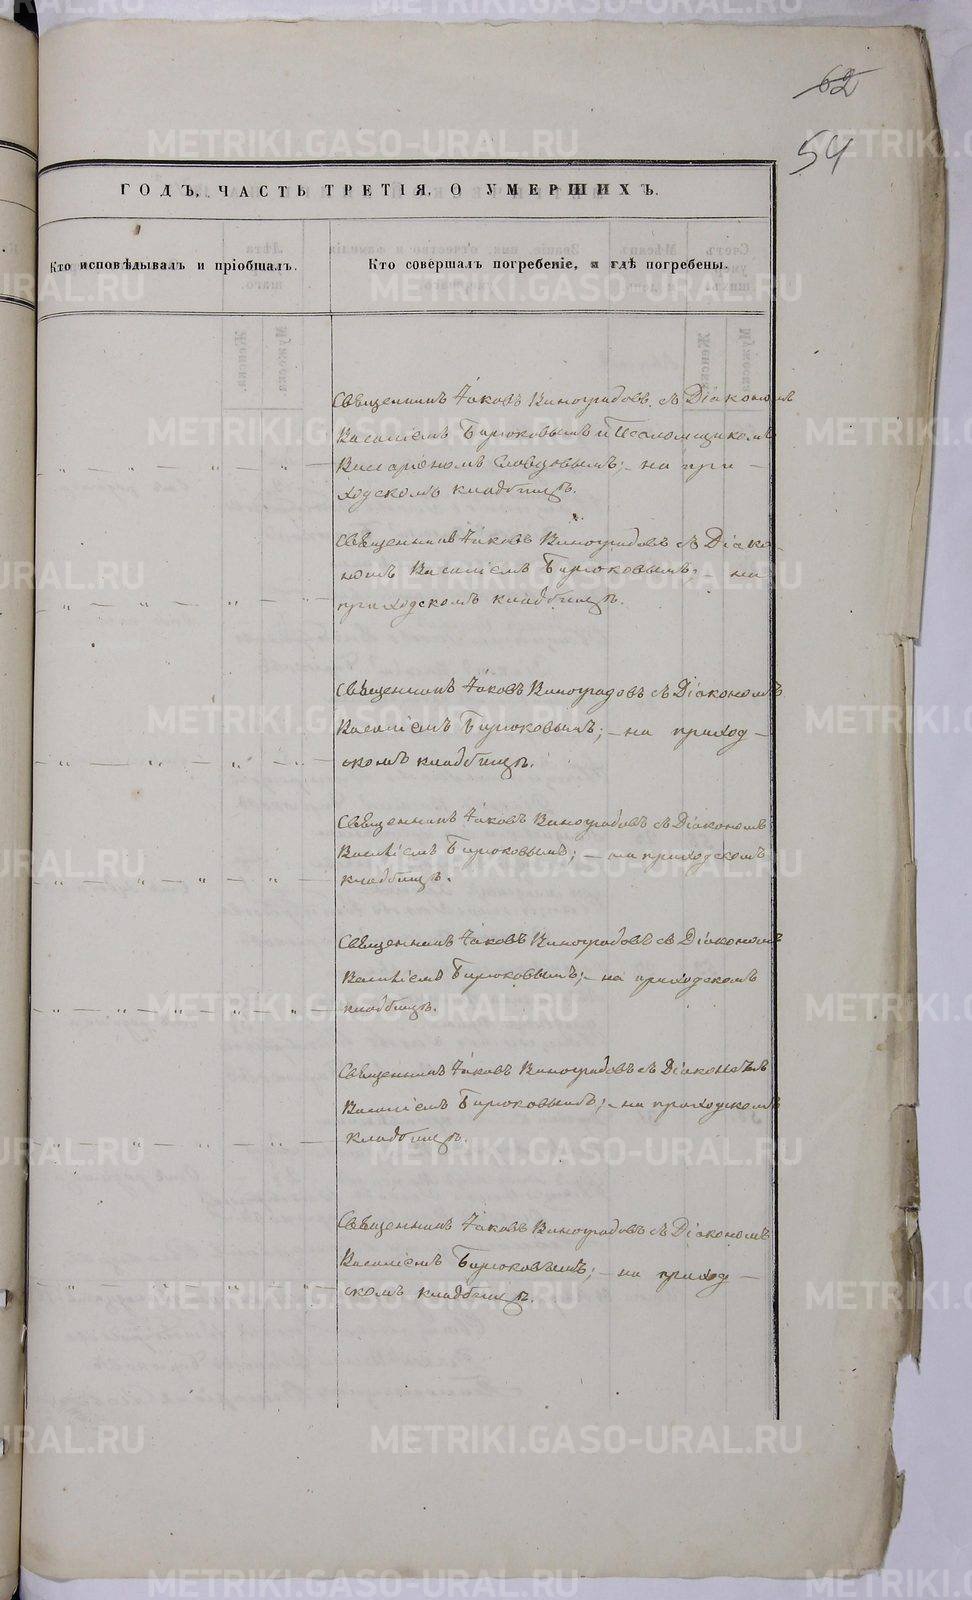 62
54
ГОДЪ, ЧАСТЬ ТРЕТІЯ, О УМЕРШИХЪ.
Кто исповѣдывалъ и пріобщалъ.
Кто совершалъ погребеніе, и гдѣ погребены.
Священникъ Іаковъ Виноградовъ съ Діакономъ
Василіемъ Бирюковымъ и Псаломщикомъ
Виссаріономъ Словцовымъ; на при-
ходскомъ кладбищѣ.
Священникъ Іаковъ Виноградовъ съ Діако-
номъ Василіемъ Бирюковымъ; – на
приходскомъ кладбищѣ.
Священникъ Іаковъ Виноградовъ съ Діакономъ
Василіемъ Бирюковымъ; – на приход-
скомъ кладбищѣ.
Священникъ Іаковъ Виноградовъ съ Діакономъ
Василіемъ Бирюковымъ; – на приходскомъ
кладбищѣ.
Священникъ Іаковъ Виноградовъ съ Діакономъ
Василіемъ Бирюковымъ; – на приходскомъ
кладбищѣ.
Священникъ Іаковъ Виноградовъ съ Діакономъ
Василіемъ Бирюковымъ; – на приходскомъ
кладбищѣ.
Священникъ Іаковъ Виноградовъ съ Діакономъ
Василіемъ Бирюковымъ; – на приход-
скомъ кладбищѣ.
METRIKI.GASO-URAL.RU